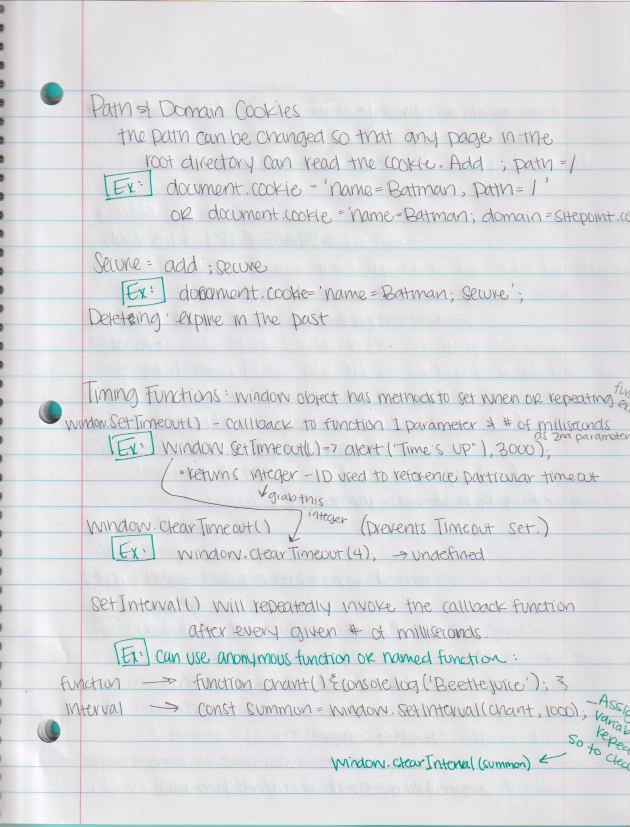 Path & Domain Cookies
the path can be changed so that any page in the
root directory can read the cookie. Add ; path =/
Ex: document.cookie = 'name=Batman; path=/'
OR document.cookie = 'name=Batman; domain=sitepoint.co
Secure = add ; secure
Ex: document.cookie='name=Batman; secure';
Deleteing: expire in the past
Timing Functions: window object has methods to set when or repeating
window.setTimeout() - callback to function 1 parameter & # of miliseconds
as 2nd parameter
Ex: window.setTimeout(()=> alert("Time's UP"), 3000);
• returns integer - ID used to reference particular timeout
grab this
integer
window.clearTimeout() (prevents Timeout set.)
Ex: window.clearTimeout(4), → undefined
setInterval() will repeatedly invoke the callback function
after every given # of milliseconds.
Ex: can use anonymous function or named function:
function → function chant() {console.log('Beetlejuice'); }
interval → const summon = window.setInterval(chant, 1000);
window.clearInterval(summon) ←
so to clea